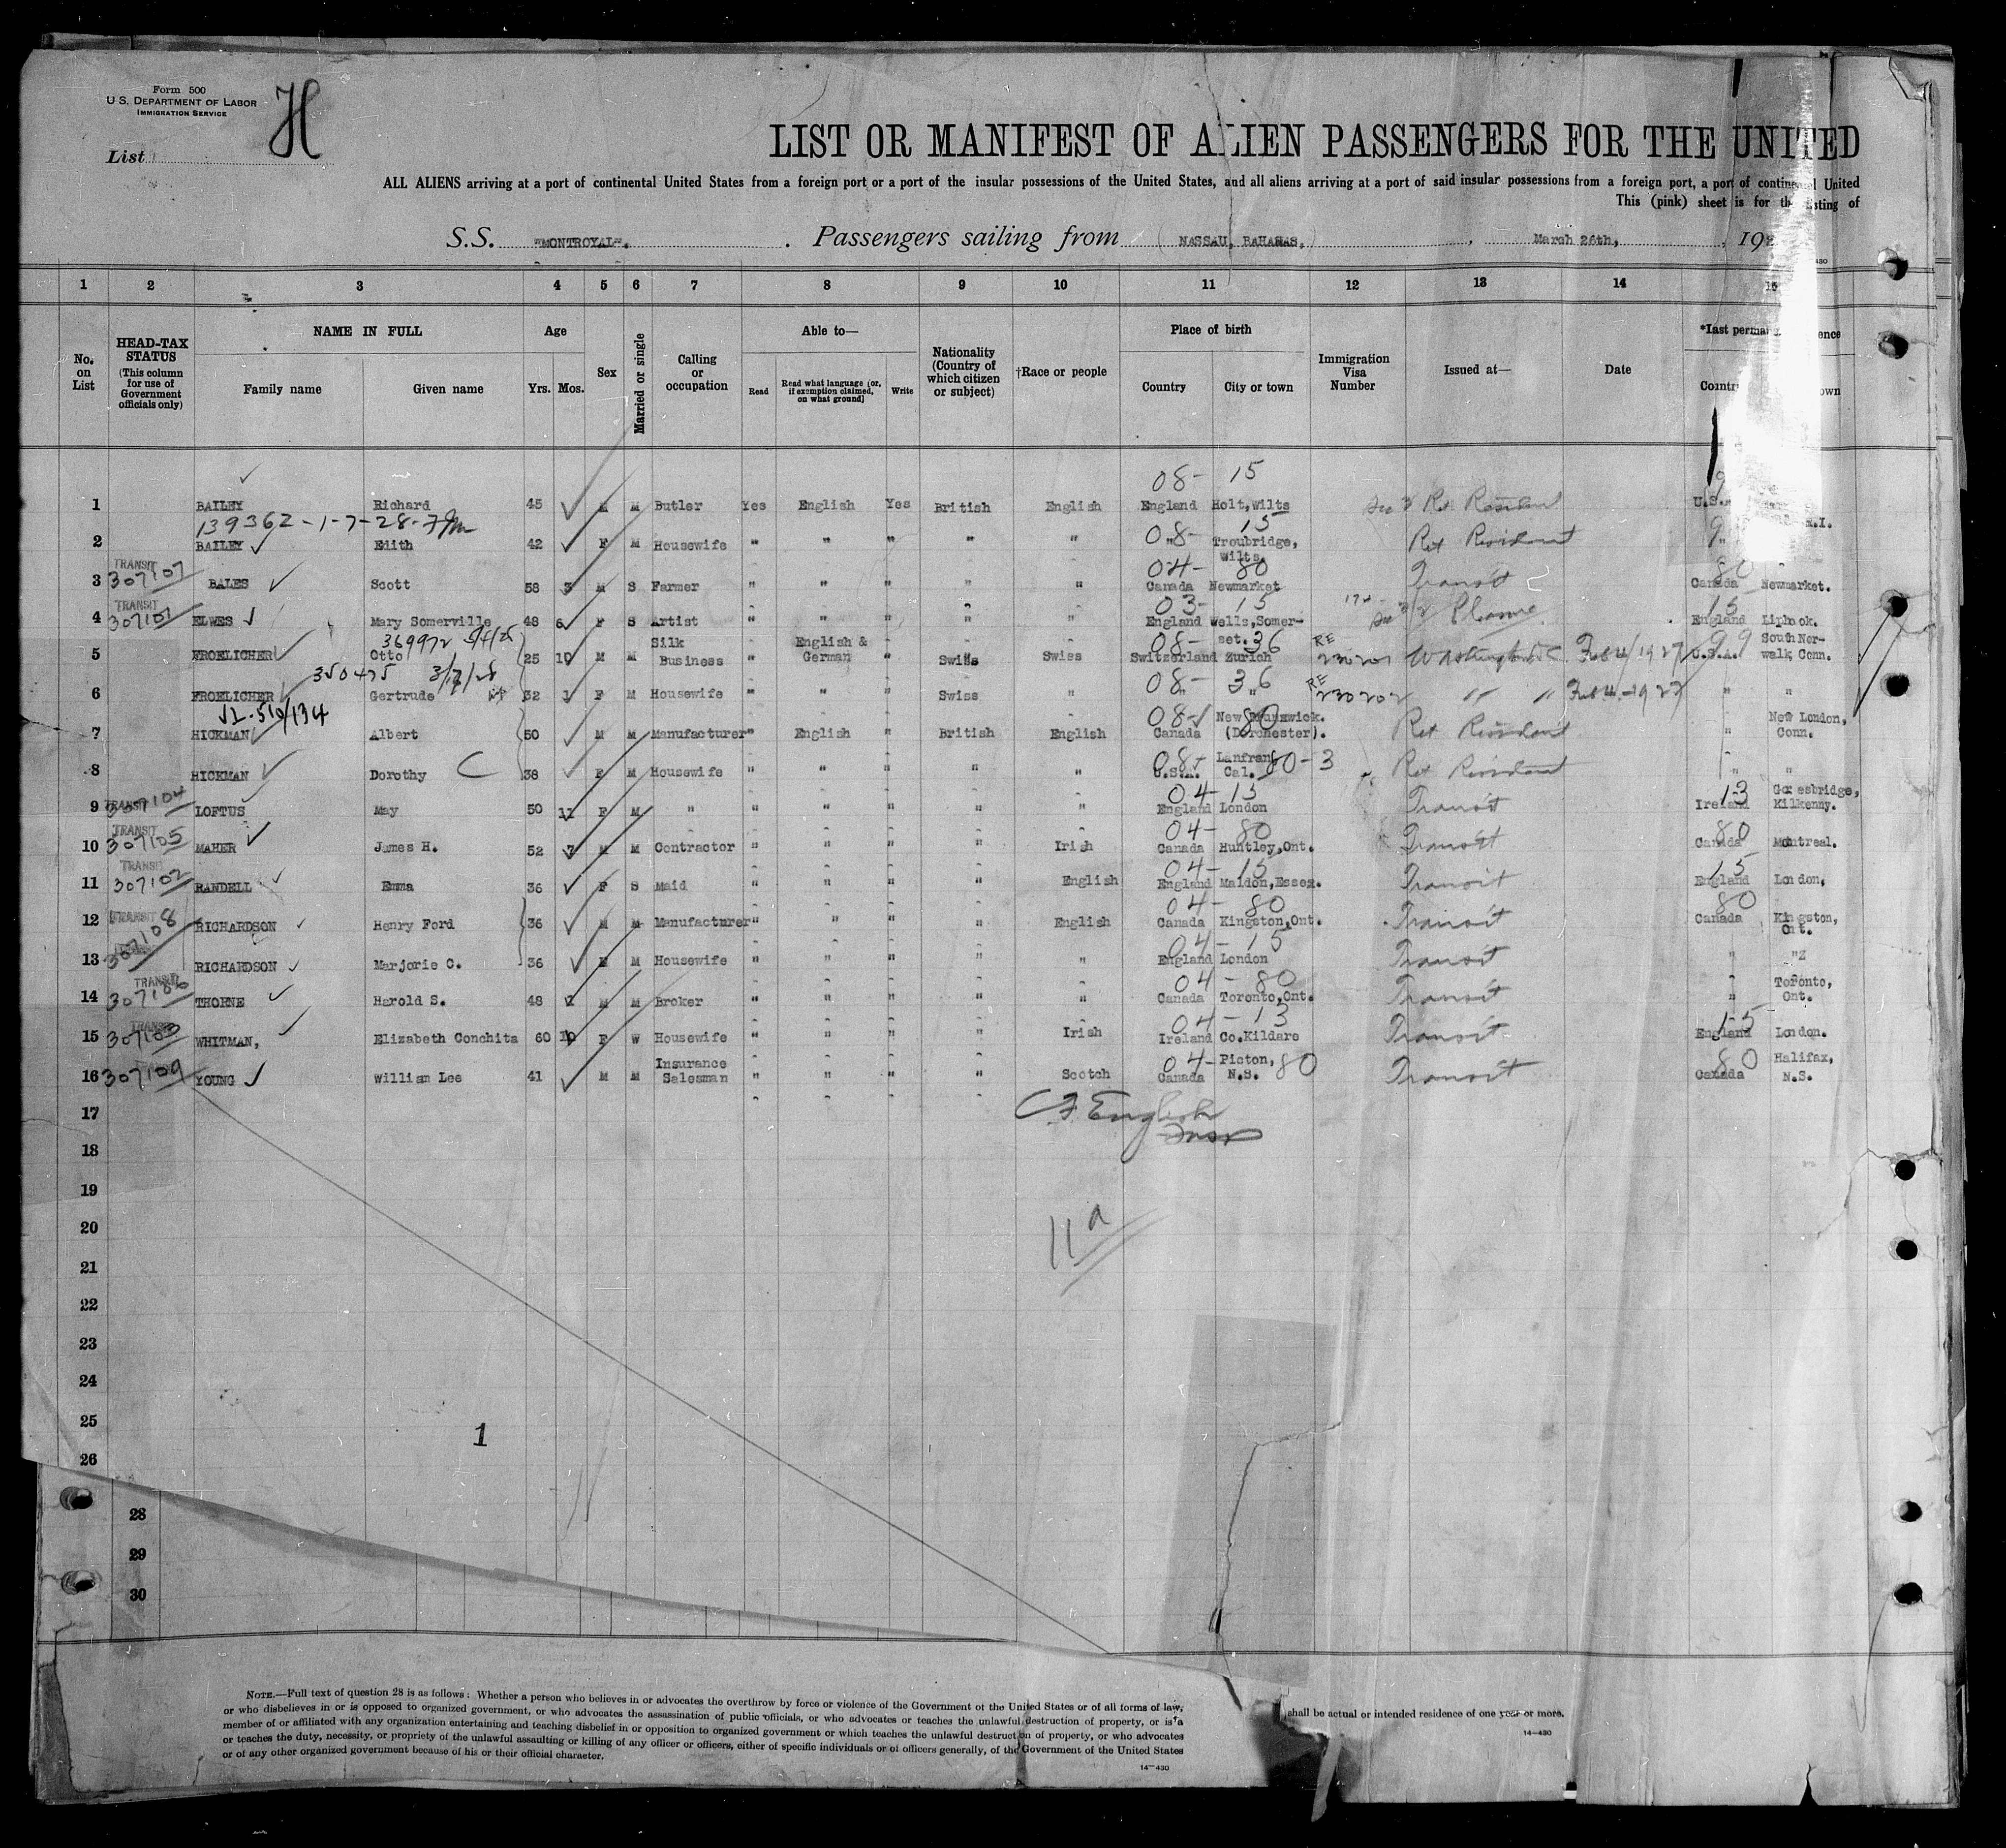 Form 500
U. S. DEPARTMENT OF LABOR
IMMIGRATION SERVICE
H
List
LIST OR MANIFEST OF ALIEN PASSENGERS FOR THE UNITED
ALL ALIENS arriving at a port of continental United States from a foreign port or a port of the insular possessions of the United States, and all aliens arriving at a port of said insular possessions from a foreign port, a port of continental United
This (pink) sheet is for the listing of
S.S. "MONTROYAL". Passengers sailing from NASSAU, BAHAMAS, March 26th, 192
1 2 3 4 5 6 7 8 9 10 11 12 13 14 15
No. on List
HEAD-TAX STATUS (This column for use of Government officials only)
NAME IN FULL Family name Given name
Age Yrs. Mos.
Sex
Married or single
Calling or occupation
Able to— Read Read what language (or, if exemption claimed, on what ground) Write
Nationality (Country of which citizen or subject)
†Race or people
Place of birth Country City or town
Immigration Visa Number
Issued at—
Date
*Last perman ence Country own
08- 15
1 BAILEY Richard 45 M M Butler Yes English Yes British English England Holt, Wilts Ret Resident U.S.
139362-1-7-28-7
08- 15
2 BAILEY Edith 42 F M Housewife " " " " " " Troubridge, Wilts. Ret Resident
TRANSIT 04- 80 80
3 307107 BALES Scott 58 3 M S Farmer " " " " " Canada Newmarket Transit Canada Newmarket.
TRANSIT 03- 15 15
4 307101 ELWES Mary Somerville 48 6 F S Artist " " " " " England Wells, Somerset. Pleasure England Liphook.
369972 08- 36 RE 99
5 FROELICHER Otto 25 10 M M Silk Business " English & German " Swiss Swiss Switzerland Zurich 230201 Washington DC Feb 4/1927 U.S.A. South Norwalk, Conn.
350475 3/7/28 08- 36 RE
6 FROELICHER Gertrude 32 1 F M Housewife " " " Swiss " " " 230202 " " Feb 4-1927 " "
VL-510/134 08- 80
7 HICKMAN Albert 50 M M Manufacturer " English " British English Canada New Brunswick. (Dorchester). Ret Resident " New London, Conn.
08- 80-3
8 HICKMAN Dorothy C 38 F M Housewife " " " " " U.S.A. Cal. Ret Resident " "
TRANSIT 04- 15 13
9 307104 LOFTUS May 50 11 F M " " " " " " England London Transit Ireland Goresbridge, Kilkenny.
TRANSIT 04- 80 80
10 307105 MAHER James H. 52 7 M M Contractor " " " " Irish Canada Huntley, Ont. Transit Canada Montreal.
TRANSIT 04- 15 15
11 307102 RANDELL Emma 36 F S Maid " " " " English England Maldon, Essex. Transit England London,
TRANSIT 04- 80 80
12 307108 RICHARDSON Henry Ford 36 M M Manufacturer " " " " English Canada Kingston, Ont. Transit Canada Kingston, Ont.
04- 15
13 RICHARDSON Marjorie C. 36 F M Housewife " " " " " England London Transit " "
TRANSIT 04- 80
14 307106 THORNE Harold S. 48 M M Broker " " " " " Canada Toronto, Ont. Transit " Toronto, Ont.
TRANSIT 04- 13 15
15 307103 WHITMAN, Elizabeth Conchita 60 10 F W Housewife " " " " Irish Ireland Co. Kildare Transit England London.
04- 80 80
16 307109 YOUNG William Lee 41 M M Insurance Salesman " " " " Scotch Canada Picton, N.S. Transit Canada Halifax, N.S.
17
C F English
18
19
20
11 a
21
22
23
24
25
1
26
28
29
30
NOTE.—Full text of question 28 is as follows: Whether a person who believes in or advocates the overthrow by force or violence of the Government of the United States or of all forms of law,
or who disbelieves in or is opposed to organized government, or who advocates the assassination of public officials, or who advocates or teaches the unlawful destruction of property, or is a
member of or affiliated with any organization entertaining and teaching disbelief in or opposition to organized government or which teaches the unlawful destruction of property, or who advocates
or teaches the duty, necessity, or propriety of the unlawful assaulting or killing of any officer or officers, either of specific individuals or of officers generally, of the Government of the United States
or of any other organized government because of his or their official character.
14—430
shall be actual or intended residence of one year or more.
14—430